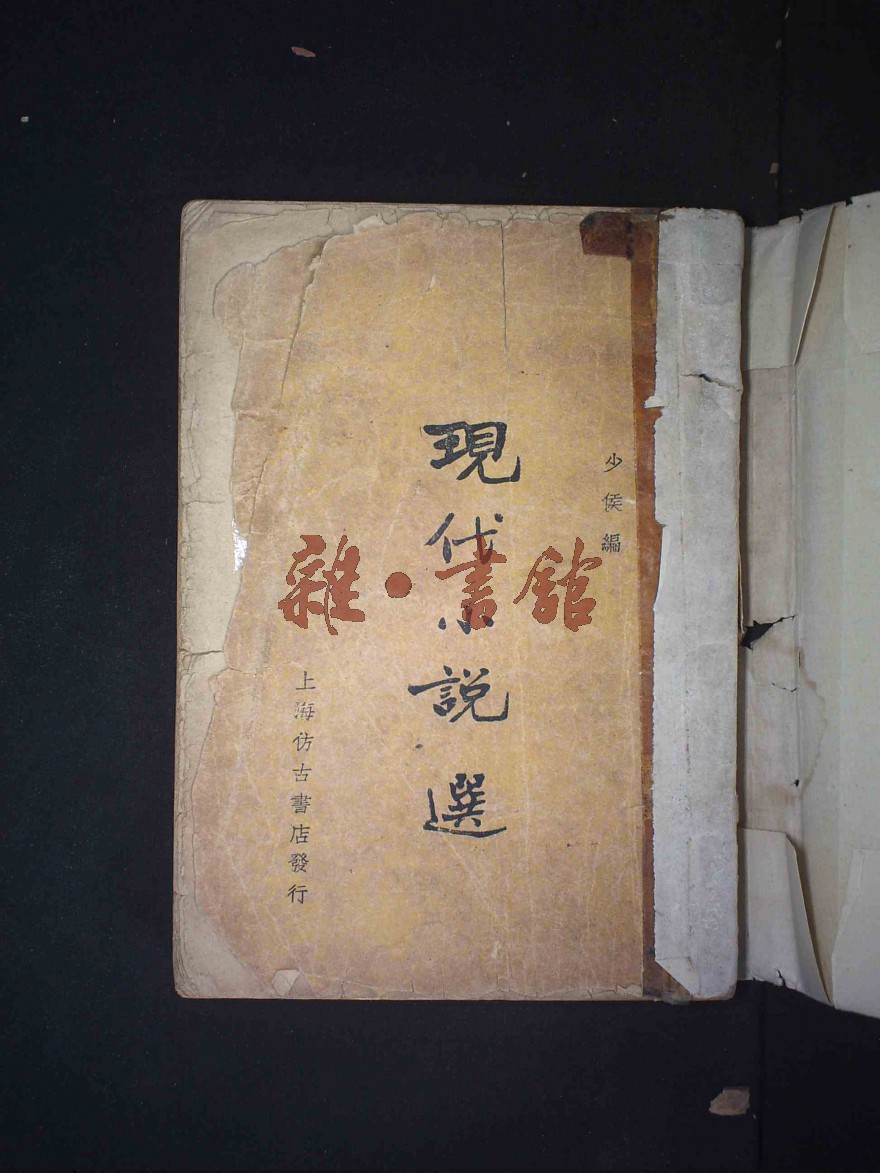 少侯編
現代小說選
上海仿古書店發行
雜·書館